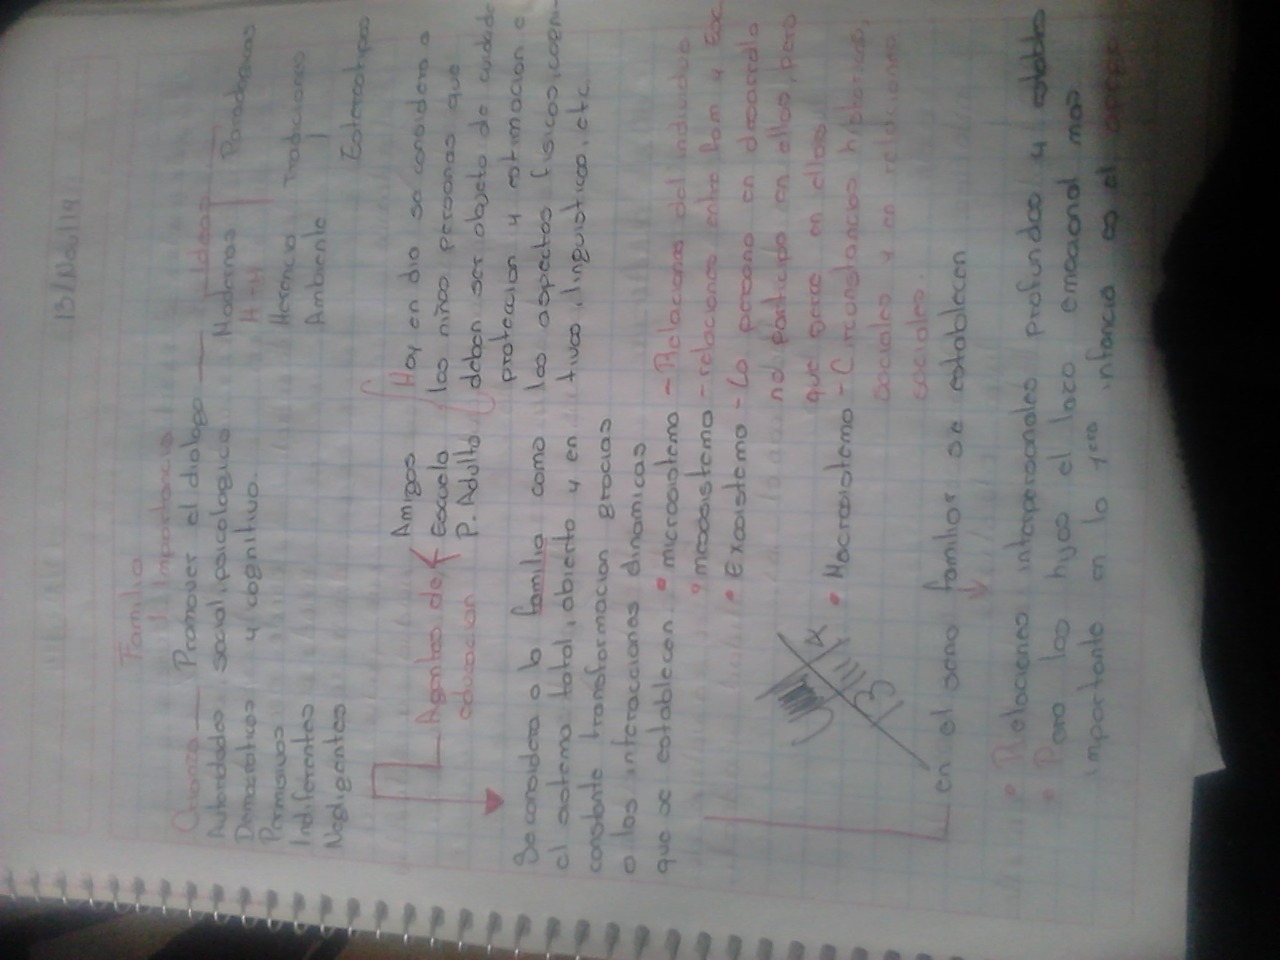 13/Nov/14
Familia
Importancia
Crianza — Promover el dialogo — Ideas
Autoridades social, psicologico Modernas Paradigmas
Democraticos y cognitivo. H-H
Permisivos Herencia Tradiciones
Indiferentes Ambiente
Negligentes Estereotipos
Amigos Hoy en dia se considera a
Agentes de Escuela los niños personas que
educacion P. Adulta deben ser objeto de cuidado
proteccion y estimacion a
Se considera a la familia como los aspectos fisicos, cogni-
el sistema total, abierto y en tivos, linguisticos, etc.
constante transformacion gracias
a las interacciones dinamicas
que se establecen. • microsistema - Relaciones del individuo
• mesosistema - relaciones entre fam y Esc
• Exosistema - La persona en desarrollo
no participa en ellos, pero
que ejerce en ellos
• Macrosistema - Circunstancias historicas,
sociales y en relaciones
sociales.
13
en el seno familiar se establecen
• Relaciones interpersonales profundas y estables
• Para los hijos el lazo emocional mas
importante en la 1era infancia es el apego